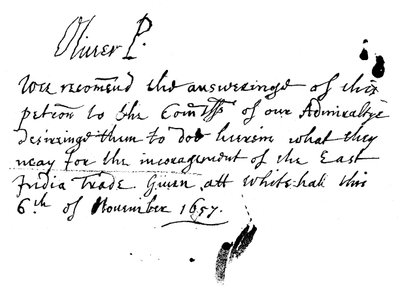 Oliver P.
Wee recom̃end the answeringe of this
petic̃on to the Com̃rs of our Admiraltye
desiringe them to doe herein what they
may for the incoragement of the East
India Trade Given att Whitehall this
6th of November 1657.